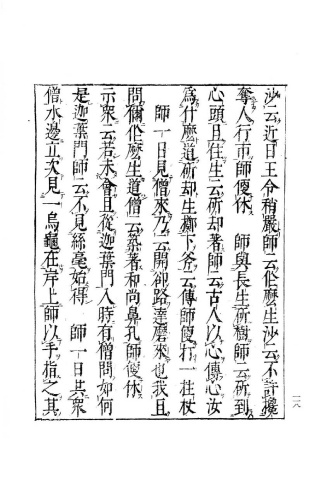 沙云近日王令稍嚴師云作麼生沙云不許攙
奪人行市師便休　師與長生斫樹師云斫到
心頭且住生云斫却著師云古人以心傳心汝
為什麼道斫却生擲下斧云傳師便打一柱杖
師一日見僧來乃云開却路達磨來也我且
問爾作麼生道僧云築著和尚鼻孔師便休
示眾云若未會且從迦葉門入時有僧問如何
是迦葉門師云不見絲毫始得　師一日共衆
僧水邊立次見一烏龜在岸上師以手指之其
一一八